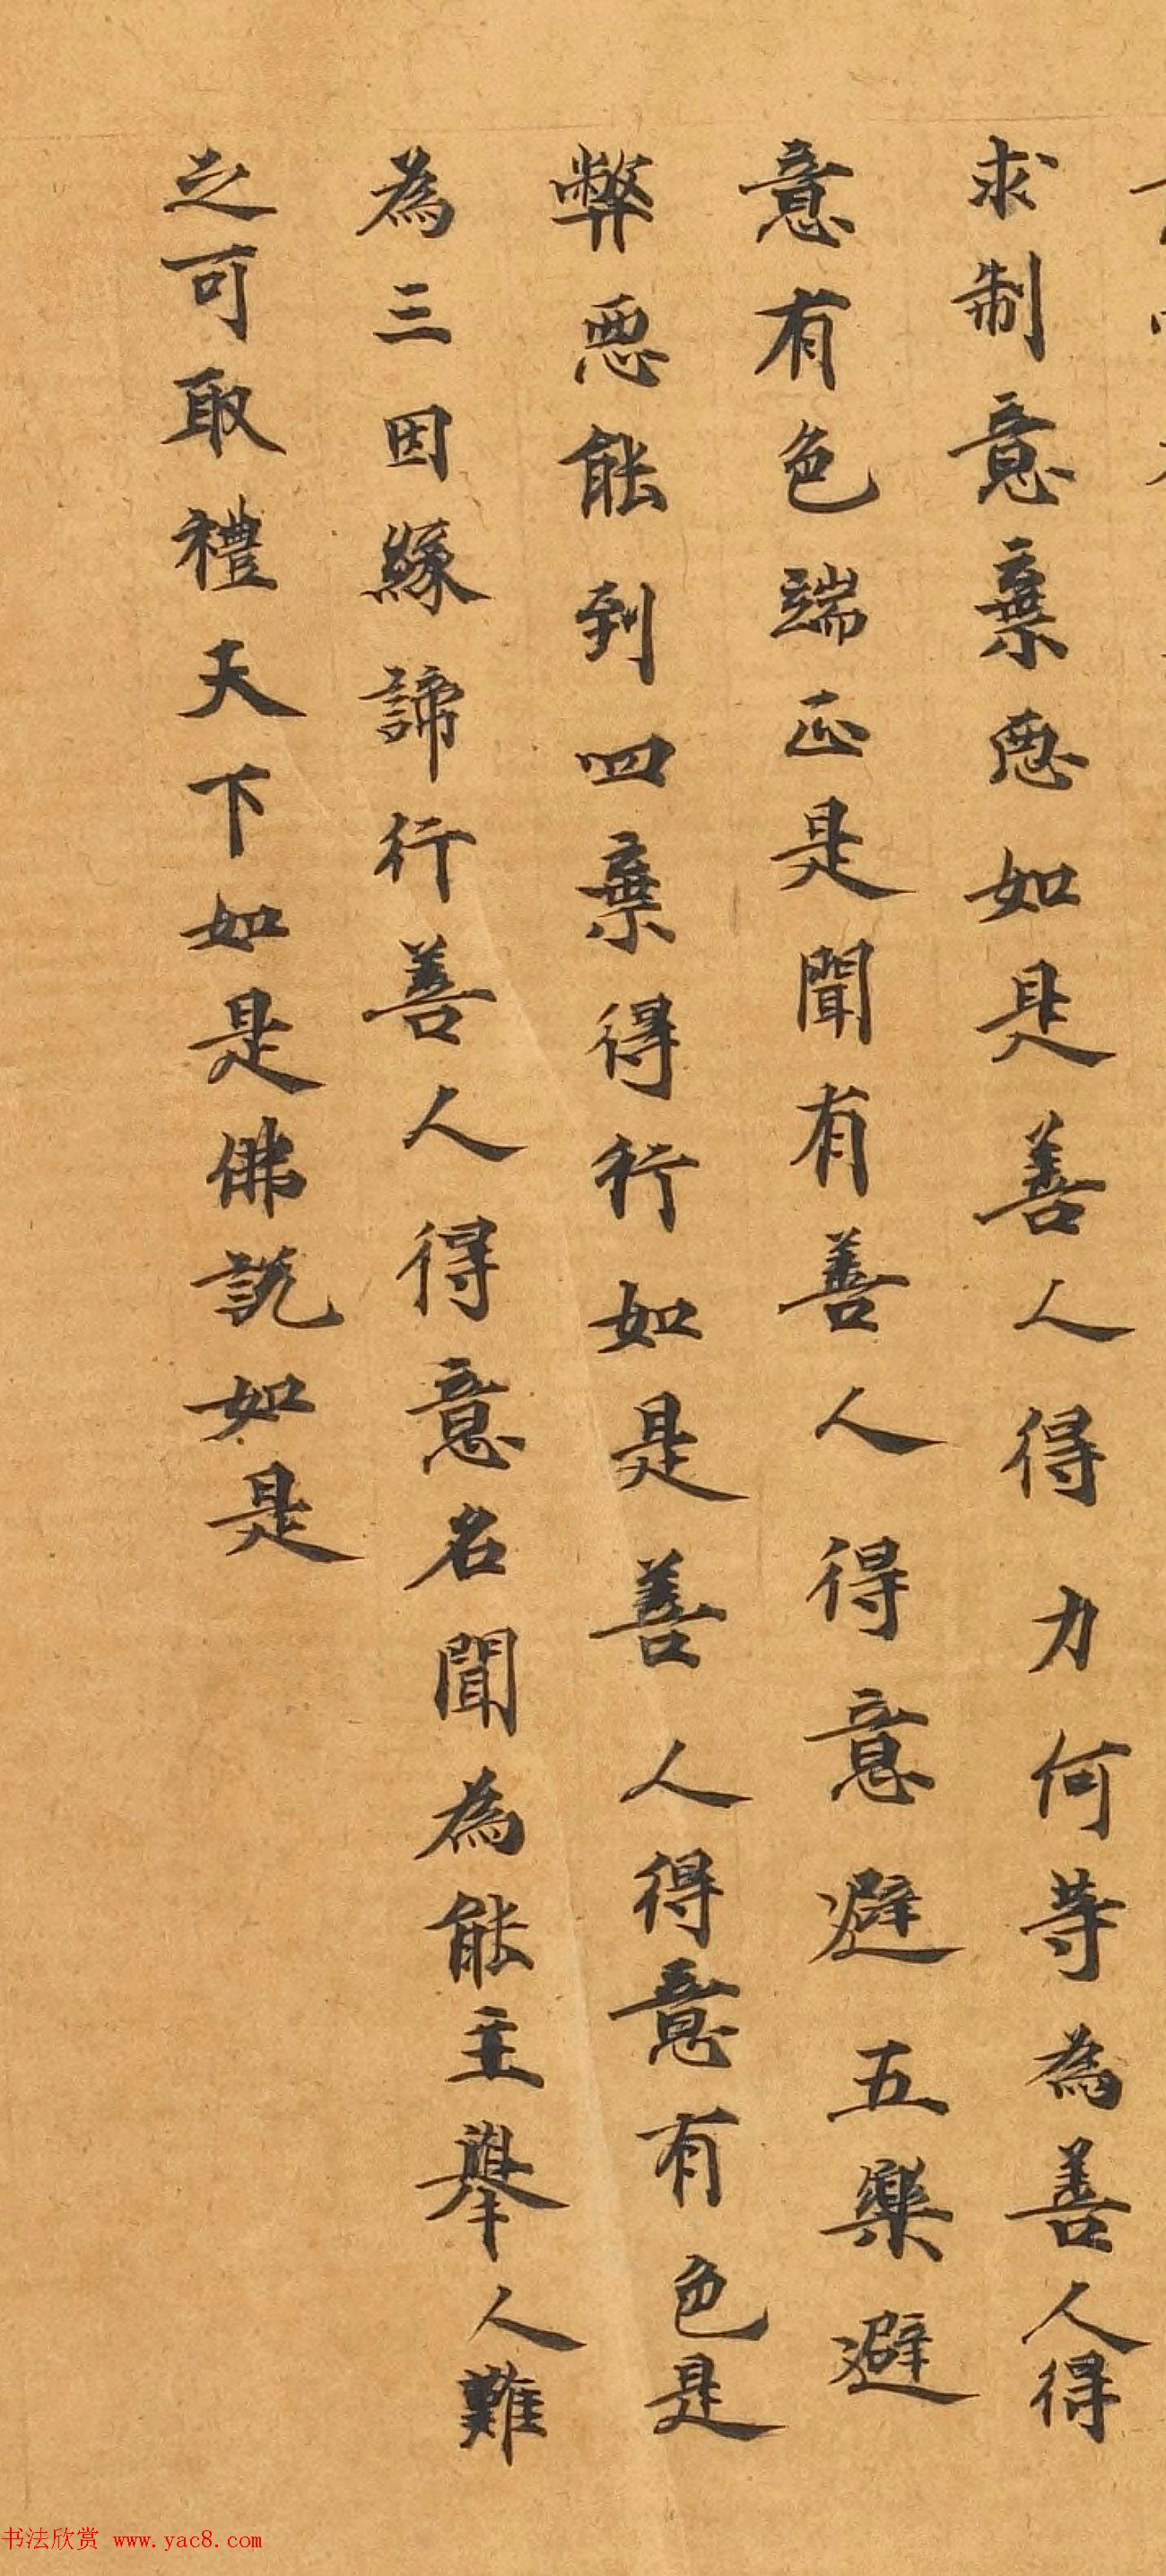 求制意棄惡如是善人得力何等為善人得
意有色端正是聞有善人得意避五樂避
弊惡能到四棄得行如是善人得意有色是
為三因緣諦行善人得意名聞為能主舉人難
之可取禮天下如是佛說如是
书法欣赏 www.yac8.com